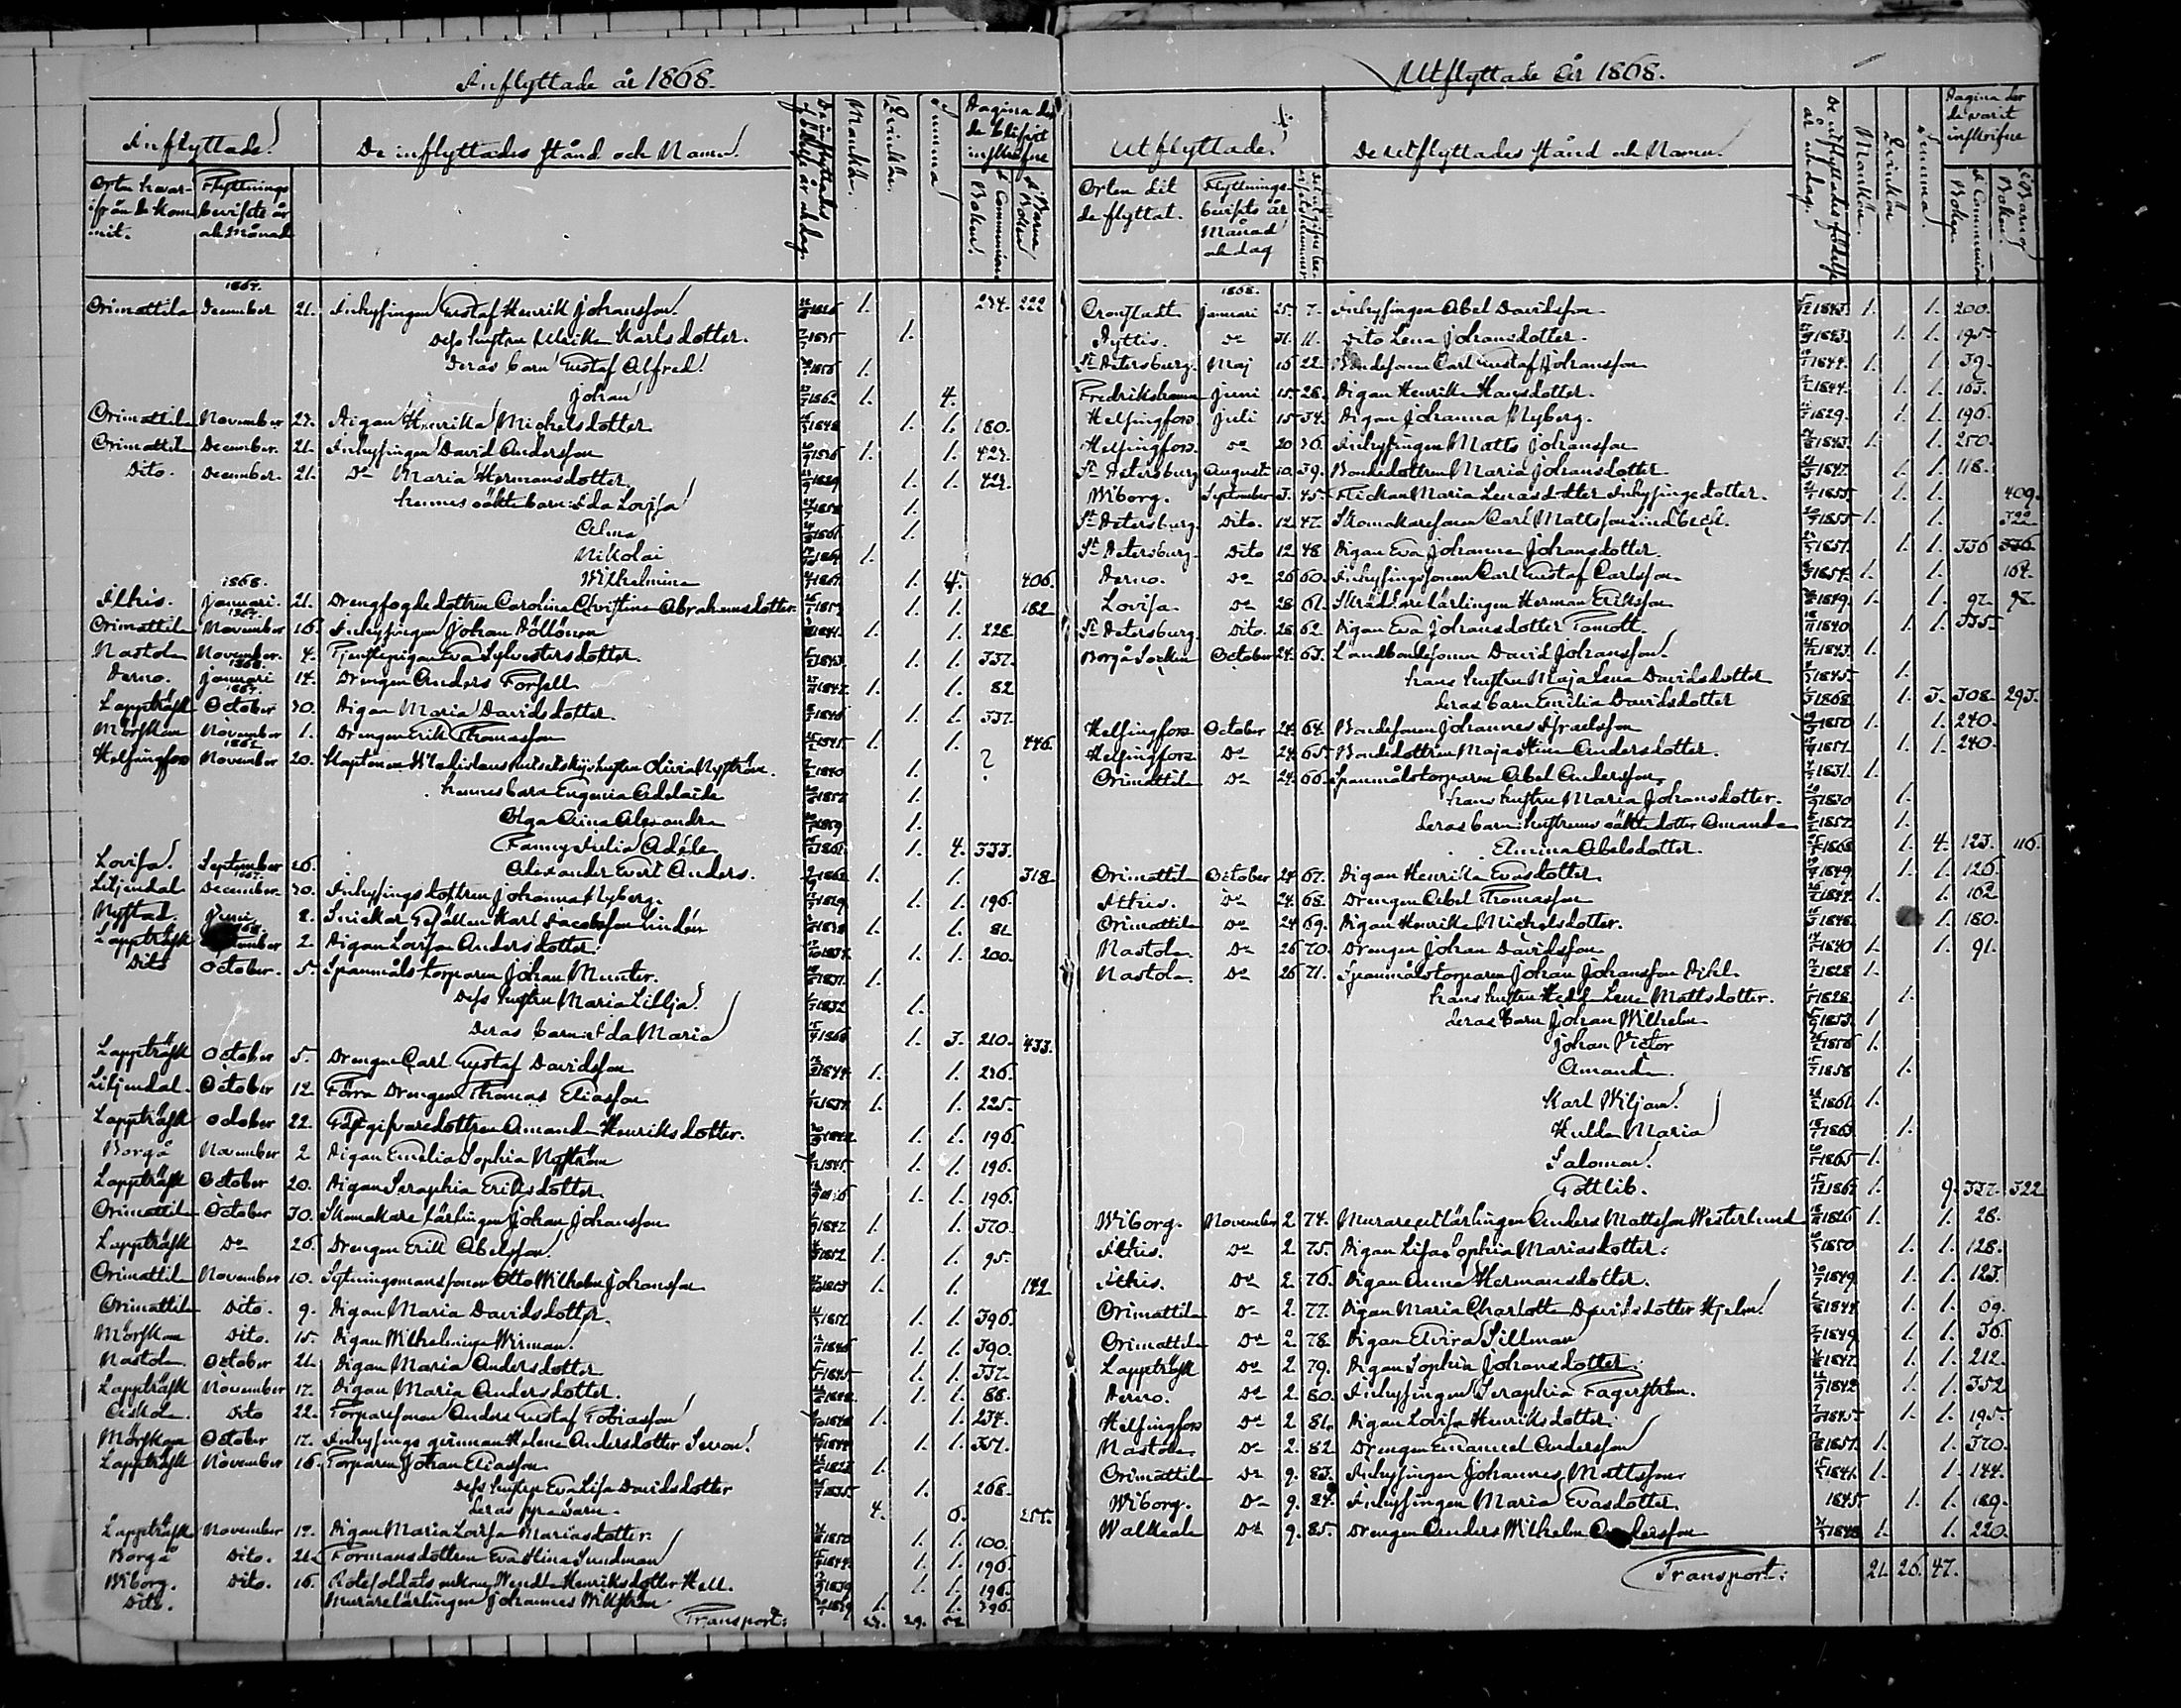 Inflyttade år 1868.
Inflyttade!
De inflyttades stånd och Namn.
De inflyttades födelse år och dag.
Mankön.
Qvinkön.
Summa
Pagina der de blifvit inskrifne
Orten hvarifrån de kommit.
Flyttnings bevisets år och Månad
i Communion Boken!
i Barna Boken
1867.
Orimattila December 21. Inhysingen Gustaf Henrik Johansson. 1. 234. 222
Dess hustru Ulrika Karlsdotter. 1835 1.
Deras barn Gustaf Alfred! 1856 1.
Johan 1862 1. 4.
Orimattila November 27. Pigan Henrika Michelsdotter 1848 1. 1. 180.
Orimattila December. 21. Inhysingen David Andersson 1836 1. 1. 427.
Dito. December. 21. Do Maria Hermansdotter 1829 1. 1. 427.
hennes oäkta barn: Ida Lovisa! 1858 1.
Alma 1861 1.
Nikolai 1864 1.
Wilhelmina 1867. 1. 4. 406.
1868.
Ithis. Januari. 21. Drengfogdedottren Carolina Christina Abrahamsdotter. 1. 1. 182
1867.
Orimattila November 16. Inhysingen Johan Pöllönen 1841. 1. 1. 228
Nastola November. 4. Tjenstepigan Eva Sylvestersdotter. 1843. 1. 1. 337.
1868.
Perno. Januari 14. Drengen Anders Forsell 1847. 1. 1. 82
1867.
Lappträsk October 30. Pigan Maria Davidsdotter. 1848 1. 1. 337.
Mörskom November 1. Drengen Erik Thomasson 1845. 1. 1. 446.
1862
Helsingfors November 20. hustru Olivia Nyström. 1840 1. ?
hennes barn Eugenia Adelaide 1857. 1.
Olga Aina Alexandra 1859 1.
Fanny Julia Adéle 1861. 1. 4. 333.
Lovisa! September 26. Alexander Evert Anders. 1862 1. 1. 318.
1867.
Liljendal December. 30. Inhysingsdottren Johanna Nyberg. 1829 1. 1. 196.
Nystad. Juni. 2. Snickar Gesällen Karl Jacobsson Lindén 1838 1. 1. 81
1868.
Lappträsk September 2 Pigan Lovisa Andersdotter. 1837. 1. 1. 200.
Dito October. 5. Spanmålstorparen Johan Munter. 1831. 1.
Dess hustru Maria Lillja! 1832 1.
Deras barn: Ida Maria 1868 1. 3. 210. 433.
Lappträsk October 5. Drengen Carl Gustaf Davidsson 1844. 1. 1. 236.
Liljendal. October 12 Förra Drengen Thomas Eliasson 1837. 1. 1. 225.
Lappträsk October 22. Gästgifvaredottren Amanda Henriksdotter. 1842 1. 1. 196.
Borgå November 2 Pigan Emelia Sophia Nyström 1845. 1. 1. 196.
Lappträsk October 20. Pigan Seraphia Eriksdotter. 1. 1. 196.
Orimattila October 30. Skomakare lärlingen Johan Johansson 1847. 1. 1. 370.
Lappträsk Do 26. Drengen Erik Abelsson. 1852 1. 1. 95.
Orimattila November 10. Sytningsmanssonen Otto Wilhelm Johansson 1. 1. 142
Orimattila Dito. 9. Pigan Maria Davidsdotter. 1851. 1. 1. 396.
Mörskom Dito. 15. Pigan Wilhelmina Wirman. 1846 1. 1. 390.
Nastola October 21. Pigan Maria Andersdotter 1845 1. 1. 337.
Lappträsk November 17. Pigan Maria Andersdotter. 1848. 1. 1. 88.
Dito 22. Torparesonen Anders Gustaf Tobiasson 1848 1. 1. 234.
Mörskom October 17. Inhysings qvinnan Helena Andersdotter 1. 1. 351.
Lappträsk November 16. Torparen Johan Eliasson 1823 1.
Dess hustru Eva Lisa Davidsdotter 1835. 1. 268.
Deras fyra barn. 4. 6. 255.
Lappträsk November 17. Pigan Maria Lovisa Mariasdotter. 1850 1. 1. 100.
Borgå Dito. 21. Formansdottren Eva Stina Sundman 1844. 1. 1. 196.
Wiborg. Dito. 16. Rotesoldats enkan Wendla Henriksdotter Hell. 1839 1. 1. 196.
Dito. Murarelärlingen Johannes Wikström 1. 1. 396.
Transport: 23. 29. 52
Utflyttade år 1868.
Utflyttade.
De utflyttades stånd och Namn.
De utflyttades födelse år och dag.
Mankön.
Qvinkön
Summa!
Pagina der de varit inskrifne
Orten dit de flyttat.
Flyttningsbevisets år Månad och dag
i Communion Boken
i Barna Boken.
1868.
Cronstadt Januari 25. 7. Inhysingen Abel Davidsson 1843. 1. 1. 200.
Pyttis. Do 31. 11. Dito Lena Johansdotter. 1823. 1. 1. 195.
St Petersburg. Maj 16 22. Bondesonen Carl Gustaf Johansson 1844. 1. 1. 39.
Fredrikshamn Juni 15. 28. Pigan Henrika Hansdotter. 1844. 1. 1. 103.
Helsingfors Juli 15. 34. Pigan Johanna Nyberg. 1829. 1. 1. 196.
Helsingfors. Do 20 36. Inhysingen Matts Johansson 1843. 1. 1. 250.
St Petersburg August 10. 39. Bondedottren Maria Johansdotter 1847. 1. 1. 118.
Wiborg. September 3. 45. Flickan Maria Lenasdotter Inhysingedotter. 1855. 1. 1. 409.
St Petersburg. Dito. 12. 47. Skomakaresonen Carl Mattsson Lindbeck. 1855. 1. 1. 322
St Petersburg. Dito 12 48 Pigan Eva Johanna Johansdotter. 1851. 1. 1. 336 336
Perno. Do 26 60. Inhysingssonen Carl Gustaf Carlsson 1854. 1. 1. 164.
Lovisa. Do 28 61. Skräddarelärlingen Herman Eriksson 1849. 1. 1. 97.
St Petersburg. Dito. 28 62. Pigan Eva Johansdotter 1840 1. 1. 335.
Borgå Socken October 24. 63. Landbondesonen David Johansson! 1843. 1.
hans hustru Maja Lena Davidsdotter 1845. 1.
deras barn Emilia Davidsdotter 1868. 1. 3. 308. 293.
Helsingfors October 24. 64. Bondesonen Johannes Israelsson 1850 1. 1. 240.
Helsingfors Do 24. 65. Bondedottren Maja Stina Andersdotter. 1851. 1. 1. 240.
Orimattila Do 24. 66. Spanmålstorparen Abel Andersson 1831. 1.
hans hustru Maria Johansdotter. 1830 1.
deras barn: hustruns oäkta dotter Amanda 1857. 1.
Elmina Abelsdotter. 1868 1. 4. 123. 116.
Orimattila October 24 67. Pigan Henrika Evasdotter. 1849. 1. 1. 126.
Ithis. Do 24. 68. Drengen Abel Thomasson 1844. 1. 1. 162
Orimattila Do 24 69. Pigan Henrika Michelsdotter. 1848. 1. 180.
Nastola Do 26 70. Drengen Johan Davidsson 1840 1. 1. 91.
Nastola Do 26 71. Spanmålstorparen Johan Johansson Pihl. 1828 1.
hans hustru Hedda Lena Mattsdotter. 1828 1.
deras barn Johan Wilhelm 1853. 1.
Johan Victor 1856 1.
Amanda. 1858 1.
Karl Wiljam! 1861. 1.
Hulda Maria 1863 1.
Salomon! 1865 1.
Gottlib. 1867 1. 9. 337. 322
Wiborg. November 2. 74. Muraregesällärlingen Anders Mattsson Westerlund 1826 1. 1. 28.
Ithis. Do 2 75. Pigan Lisa Sophia Mariasdotter. 1850 1. 1. 128.
Ithis. Do 2. 76. Pigan Anna Hermansdotter. 1849. 1. 1. 123.
Orimattila Do 2. 77. Pigan Maria Charlotta Davidsdotter Hjelm! 1844 1. 1. 69.
Orimattila Do 2. 78. Pigan Elvira Sillman 1849. 1. 1. 36.
Lappträsk Do 2. 79. Pigan Sophia Johansdotter. 1847. 1. 1. 212.
Perno. Do 2. 80. Inhysingen Seraphia Fagerström. 1842 1. 1. 352
Helsingfors Do 2. 81. Pigan Lovisa Henriksdotter. 1845. 1. 1. 195.
Nastola Do 2. 82 Drengen Emanuel Andersson 1851. 1. 1. 370.
Orimattila Do 9. 83. Inhysingen Johannes Mattsson 1841. 1. 1. 144.
Wiborg. Do 9. 84. Inhysingen Maria Evasdotter. 1845 1. 1. 189.
Walkeala Do 9. 85. Drengen Anders Wilhelm Andersson 1848 1. 1. 220.
Transport: 21. 26. 47.